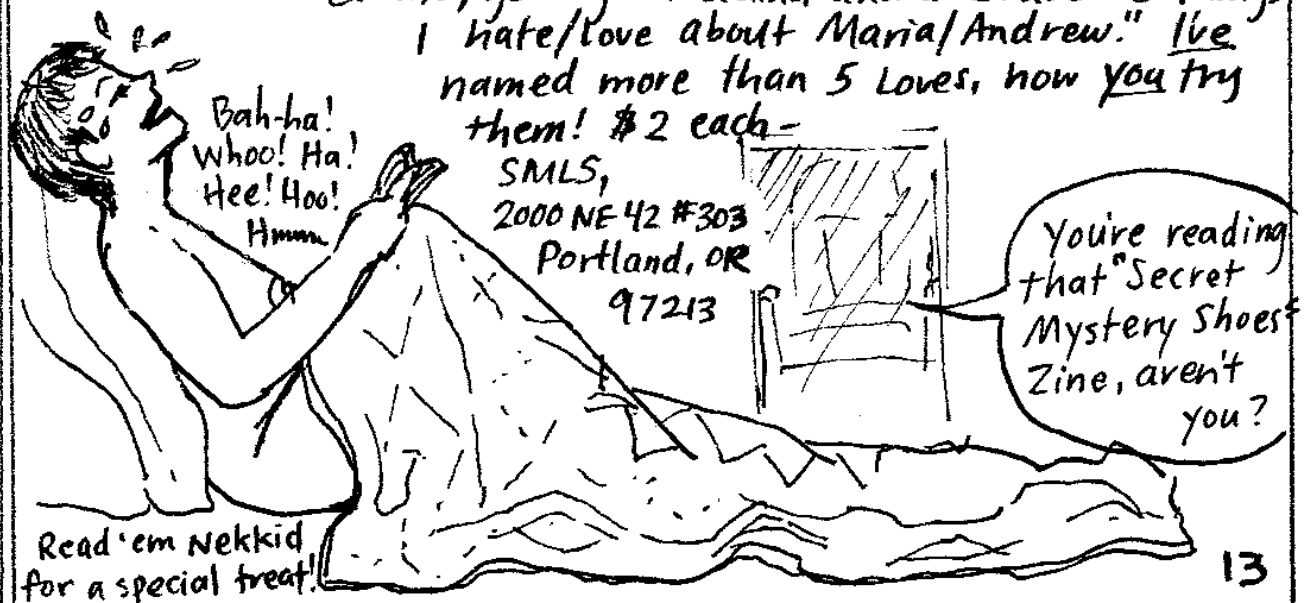 I hate/love about Maria/Andrew." I've
named more than 5 Loves, now you try
them! $2 each-
SMLS,
2000 NE 42 #303
Portland, OR
97213
Bah-ha!
Whoo! Ha!
Hee! Hoo!
Hmmm
You're reading
that "Secret
Mystery Shoes"
Zine, aren't
you?
Read 'em Nekkid
for a special treat!
13